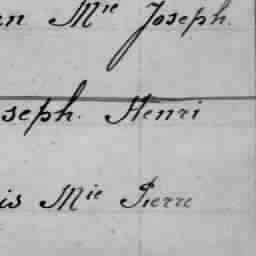 en Mie Joseph.
seph. Henri
is Mie Pierre